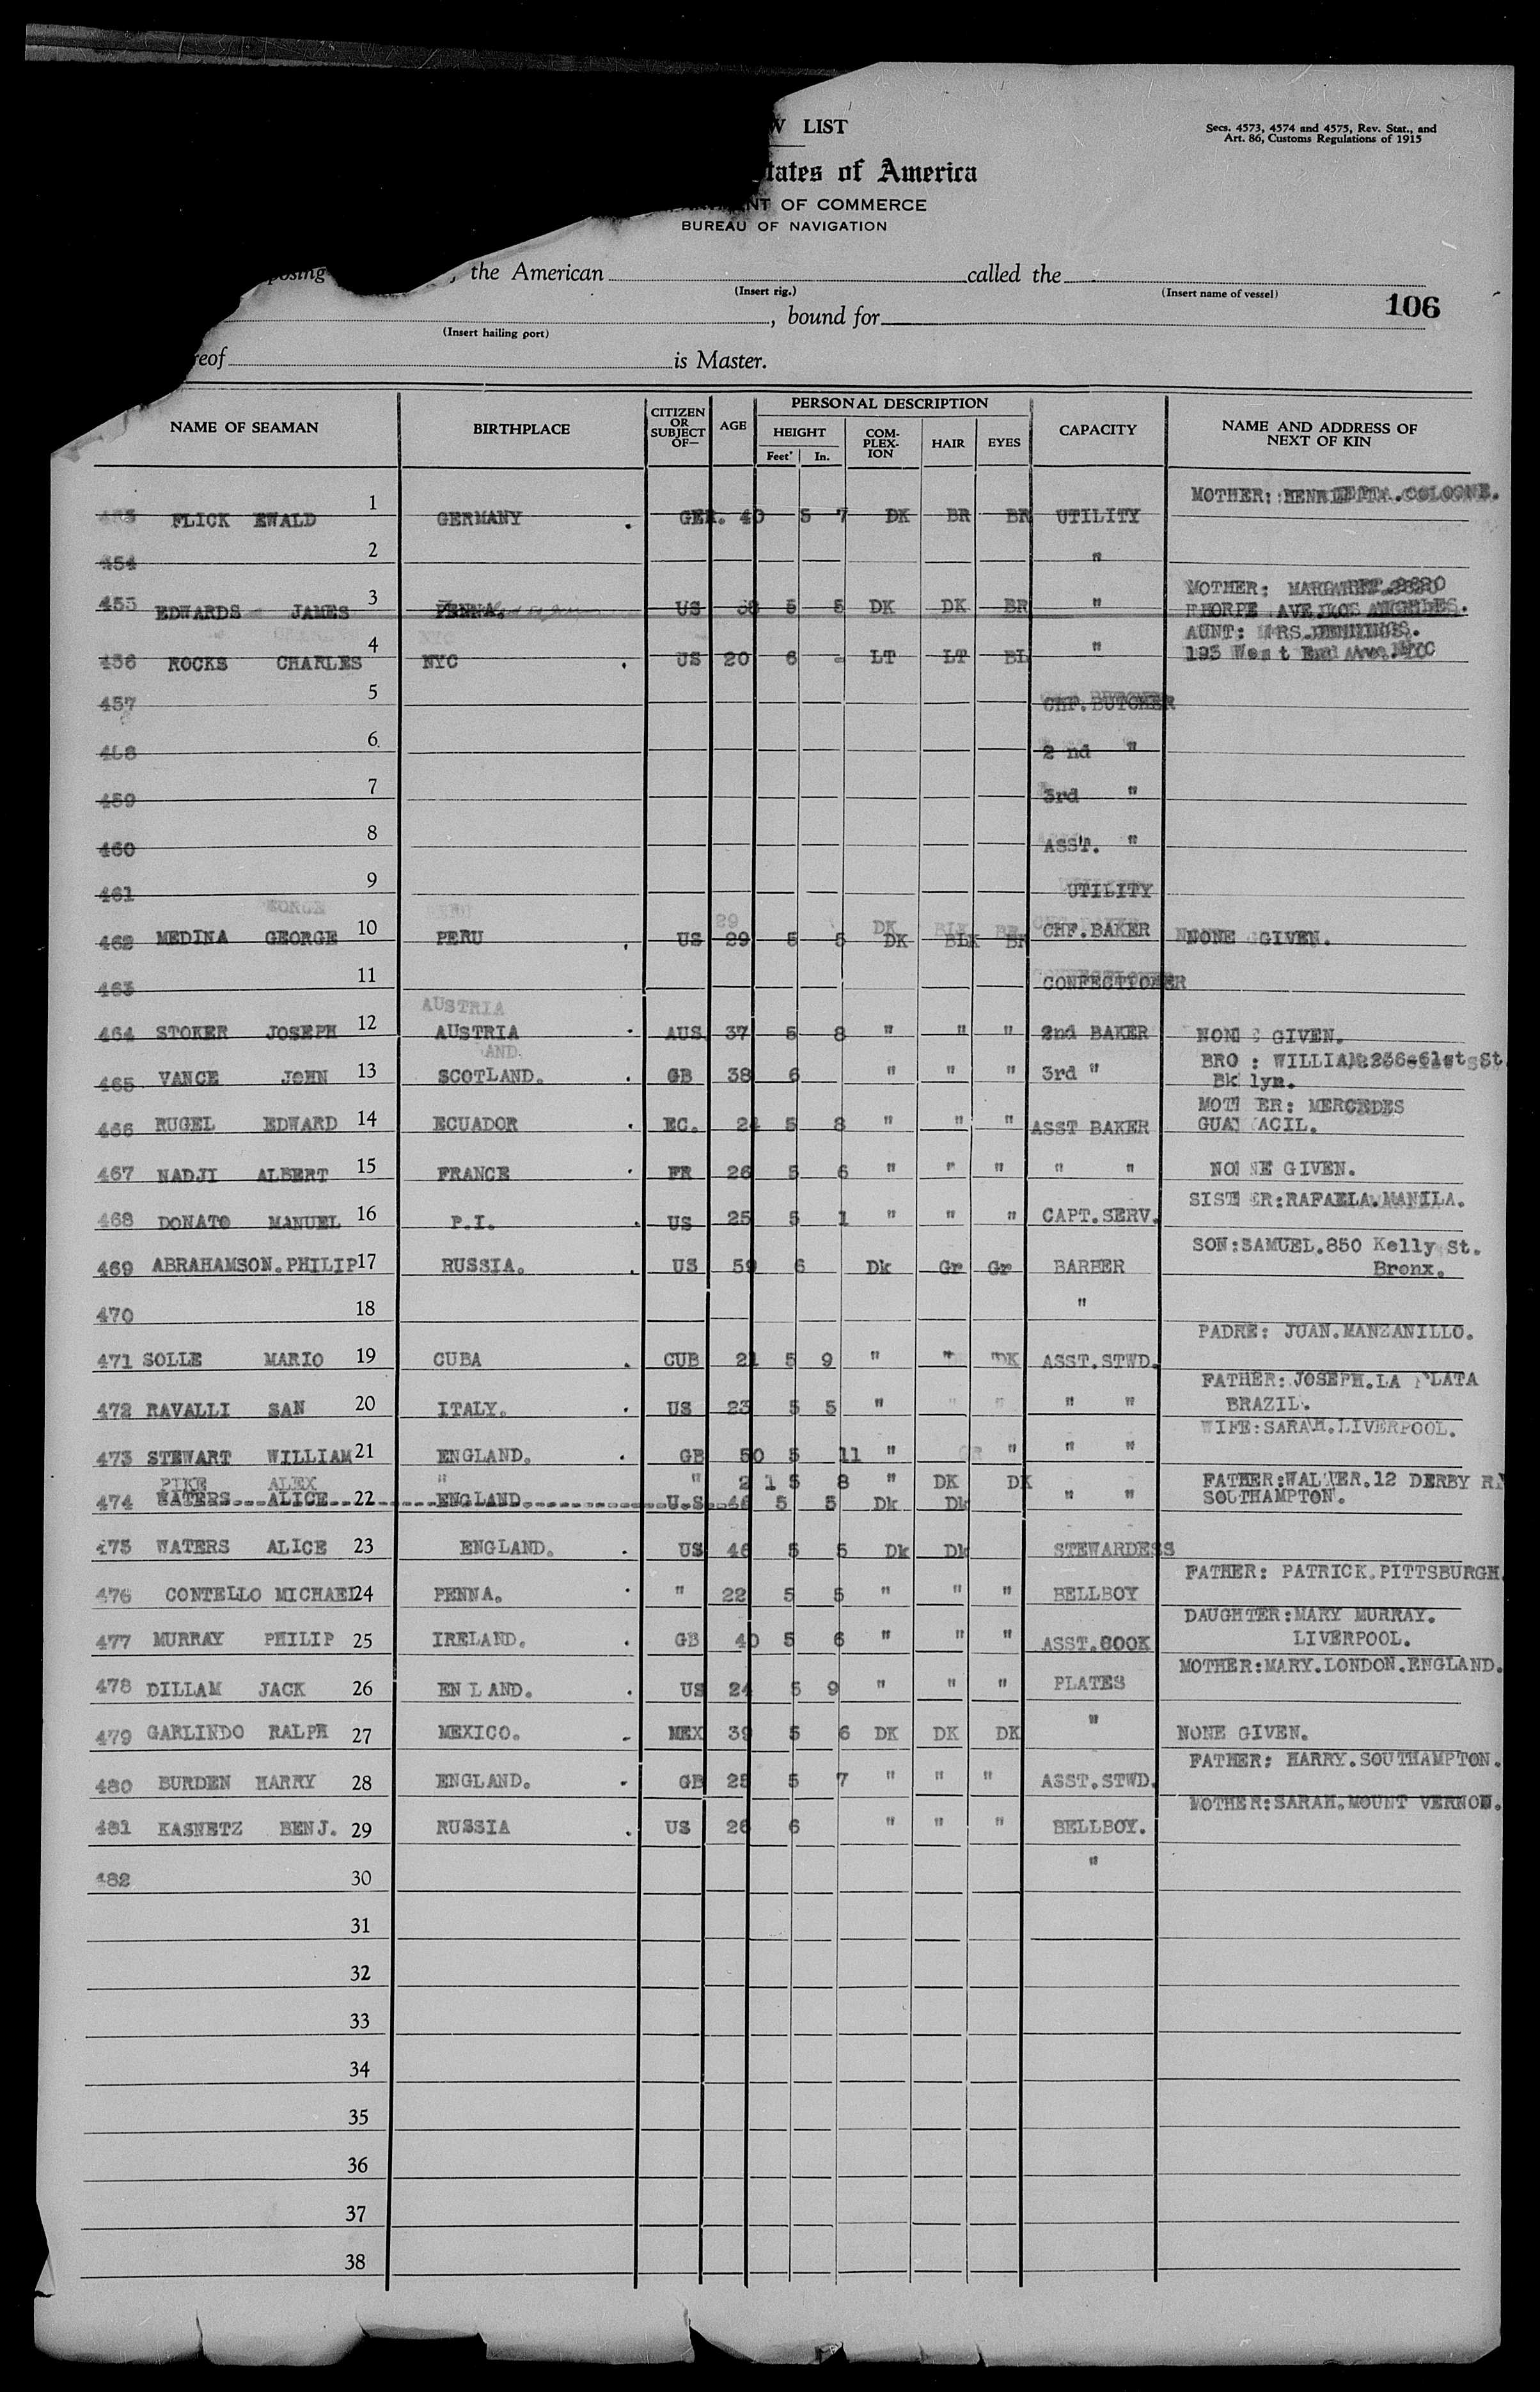 W LIST
Secs. 4573, 4574 and 4575, Rev. Stat., and
Art. 86, Customs Regulations of 1915
tates of America
NT OF COMMERCE
BUREAU OF NAVIGATION
posing , the American called the
(Insert rig.) (Insert name of vessel)
106
, bound for
(Insert hailing port)
reof is Master.
NAME OF SEAMAN BIRTHPLACE CITIZEN OR SUBJECT OF— AGE PERSONAL DESCRIPTION HEIGHT Feet In. COM-PLEX-ION HAIR EYES CAPACITY NAME AND ADDRESS OF NEXT OF KIN
MOTHER: HENRIETTA. COLOGNE.
453 FLICK EWALD 1 GERMANY . GER. 40 5 7 DK BR BR UTILITY
454 2 "
MOTHER: MARGARET. 2820
455 EDWARDS JAMES 3 PENNA. US 5 5 DK DK BR " THORPE AVE. LOS ANGELES.
AUNT: MRS. JENNINGS.
456 ROCKS CHARLES 4 NYC . US 20 6 - LT LT BL " 193 West End Ave. NYC
457 5 CHF. BUTCHER
458 6 2 nd "
459 7 3rd "
460 8 ASST. "
461 9 UTILITY
462 MEDINA GEORGE 10 PERU . US 29 5 5 DK BLK BR CHF. BAKER NONE GIVEN.
463 11 CONFECTIONER
464 STOKER JOSEPH 12 AUSTRIA . AUS 37 5 8 " " " 2nd BAKER NONE GIVEN.
BRO : WILLIAM 236-61st St.
465 VANCE JOHN 13 SCOTLAND. . GB 38 6 " " " 3rd " Bklyn.
MOTHER: MERCEDES
466 RUGEL EDWARD 14 ECUADOR . EC. 24 5 8 " " " ASST BAKER GUAYACIL.
467 NADJI ALBERT 15 FRANCE . FR 26 5 6 " " " " " NONE GIVEN.
SISTER: RAFAELA. MANILA.
468 DONATO MANUEL 16 P.I. . US 25 5 1 " " " CAPT. SERV.
SON: SAMUEL. 850 Kelly St.
469 ABRAHAMSON. PHILIP 17 RUSSIA. . US 59 6 Dk Gr Gr BARBER Bronx.
470 18 "
PADRE: JUAN. MANZANILLO.
471 SOLLE MARIO 19 CUBA . CUB 21 5 9 " " "DK ASST. STWD.
FATHER: JOSEPH. LA PLATA
472 RAVALLI SAN 20 ITALY. . US 23 5 5 " " " " " BRAZIL.
WIFE: SARAH. LIVERPOOL.
473 STEWART WILLIAM 21 ENGLAND. . GB 50 5 11 " " " "
PIKE ALEX " " 21 5 8 " DK DK FATHER: WALTER. 12 DERBY R
474 WATERS ALICE 22 ENGLAND U.S 46 5 5 Dk Dk " " SOUTHAMPTON.
475 WATERS ALICE 23 ENGLAND. . US 46 5 5 Dk Dk STEWARDESS
FATHER: PATRICK. PITTSBURGH.
476 CONTELLO MICHAEL 24 PENNA. . " 22 5 5 " " " BELLBOY
DAUGHTER: MARY MURRAY.
477 MURRAY PHILIP 25 IRELAND. . GB 40 5 6 " " " ASST. COOK LIVERPOOL.
MOTHER: MARY. LONDON. ENGLAND.
478 DILLAM JACK 26 ENLAND. . US 24 5 9 " " " PLATES
479 GARLINDO RALPH 27 MEXICO. . MEX 39 5 6 DK DK DK " NONE GIVEN.
FATHER: HARRY. SOUTHAMPTON.
480 BURDEN HARRY 28 ENGLAND. . GB 25 5 7 " " " ASST. STWD.
MOTHER: SARAH. MOUNT VERNON.
481 KASNETZ BENJ. 29 RUSSIA . US 26 6 " " " BELLBOY.
482 30 "
31
32
33
34
35
36
37
38